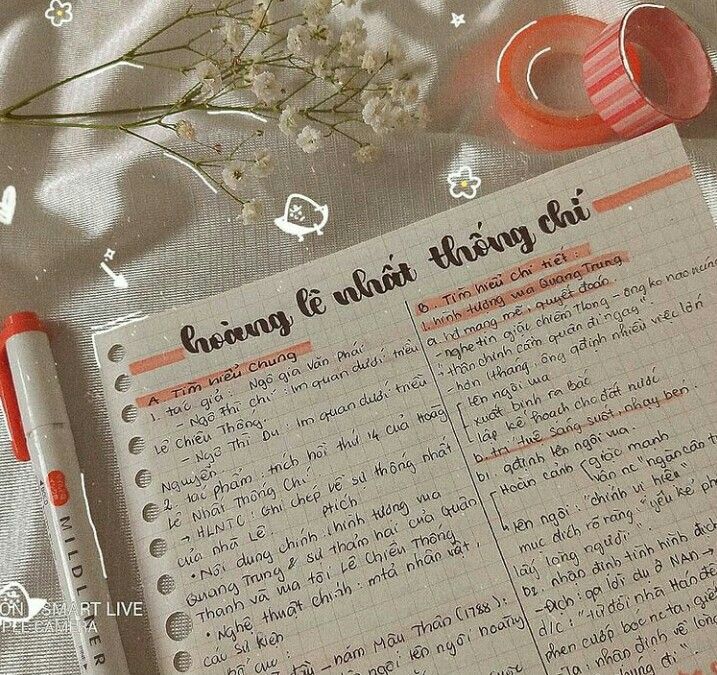 hoàng lê nhất thống chí
A. Tìm hiểu chung
1. tác giả: Ngô gia Văn Phái
- Ngô Thì Chí: lm quan dưới triều
Lê Chiêu Thống.
- Ngô Thì Du: lm quan dưới triều
Nguyễn
2. tác phẩm: trích hồi thứ 14 của Hoàng
Lê Nhất Thống Chí
→ HLNTC: Ghi chép về sự thống nhất
của nhà Lê. ptích
• Nội dung chính: hình tượng vua
Quang Trung & sự thảm hại của Quân
Thanh và vua tôi Lê Chiêu Thống
• Nghệ thuật chính: mtả nhân vật,
các sự kiện
bố cục:
năm Mậu Thân (1788):
lên ngôi hoàng
B. Tìm hiểu chi tiết:
1. hình tượng vua Quang Trung
a. hđ mạng mẽ, quyết đoán.
- nghe tin giặc chiếm Tlong → ông ko nao núng
"thân chinh cầm quân đi ngay".
- hơn 1 tháng, ông qđịnh nhiều việc lớn
lên ngôi vua
xuất binh ra Bắc
lập kế hoạch cho đất nước
b. trí tuệ sáng suốt, nhạy bén.
b1. qđịnh lên ngôi vua.
Hoàn cảnh giặc mạnh
vận nc "ngàn cân t
lên ngôi: "chính vị hiệu"
mục đích rõ ràng: "yên kẻ ph
lấy lòng người".
b2. nhận định tình hình địch
- Địch: qa lời dụ ở NAN →
d/c: "từ đời nhà Hán đế
phen cướp bóc nc ta, giế
- ta: nhận định về lòng
chung đi".
MILDL
SMART LIVE